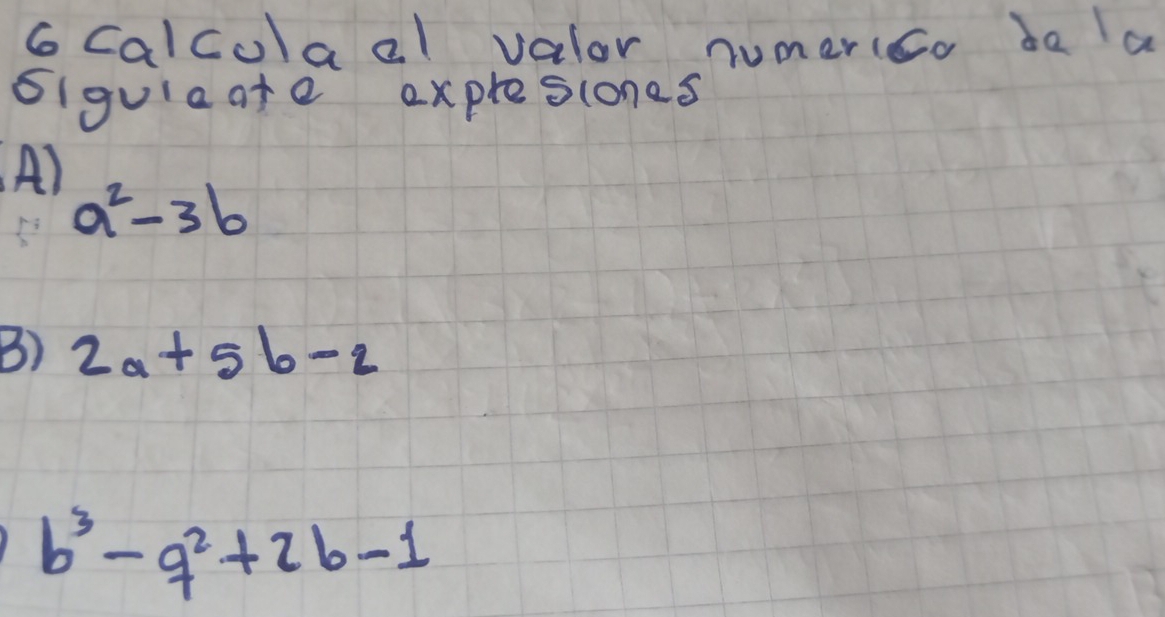 6 Calcula el valor numerico de la
siguiente expresiones
A)
a² - 3b
B) 2a + 5b - 2
) b³ - q² + 2b - 1